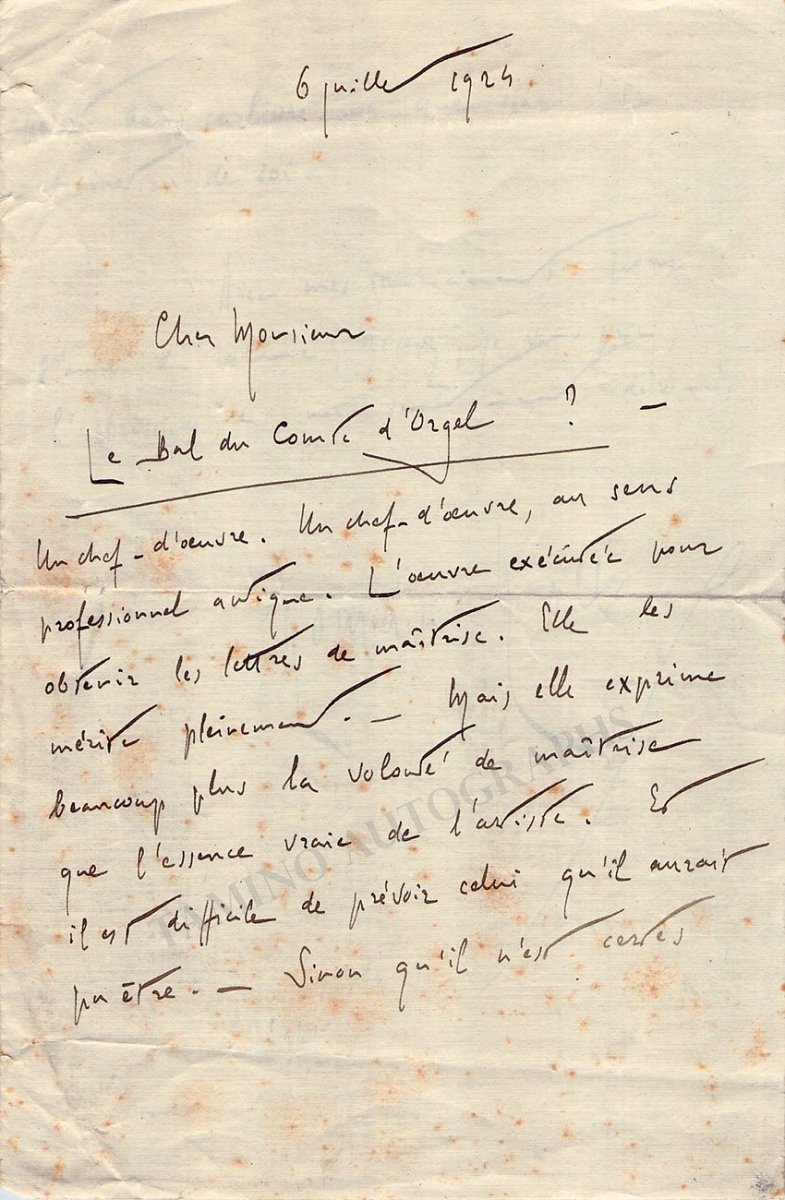 6 juillet 1924
Cher Monsieur
Le Bal du Comte d'Orgel ? —
Un chef-d'œuvre. Un chef-d'œuvre, au sens
professionnel antique. L'œuvre exécutée pour
obtenir les lettres de maîtrise. Elle les
mérite pleinement. — Mais elle exprime
beaucoup plus la volonté de maîtrise
que l'essence vraie de l'artiste. Et
il est difficile de prévoir celui qu'il aurait
pu être. — Sinon qu'il n'est certes
TAMINO AUTOGRAPHS